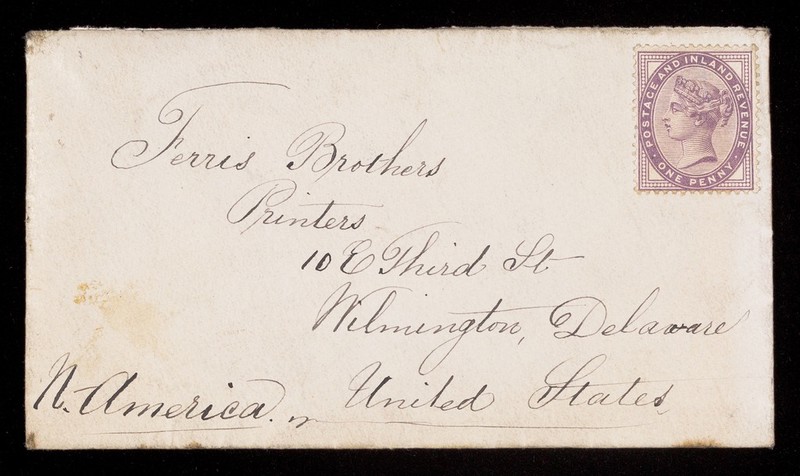 POSTAGE AND INLAND REVENUE
ONE PENNY
Ferris Brothers
Printers
10 E Third St
Wilmington, Delaware
N. America. United States,